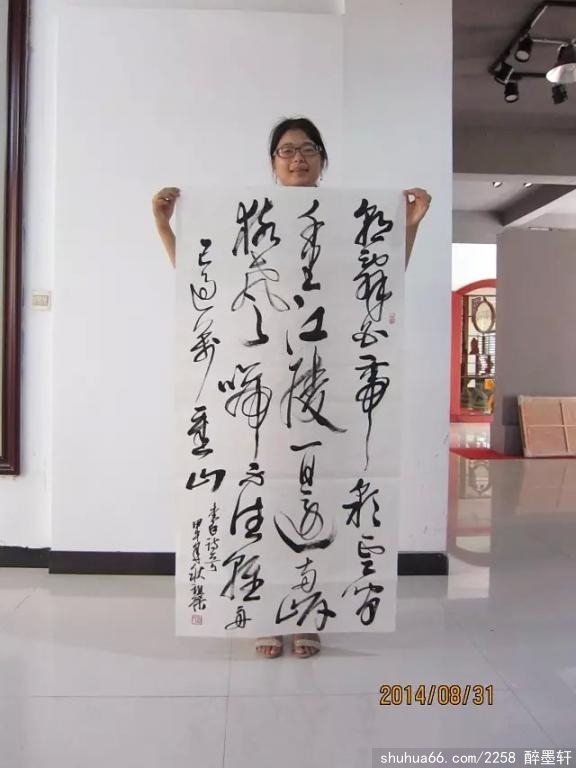 朝辭白帝彩雲間
千里江陵一日還兩岸
猿聲啼不住輕舟
已過萬重山
李白詩一首
甲午秋
2014/08/31
shuhua66.com/2258 醉墨轩